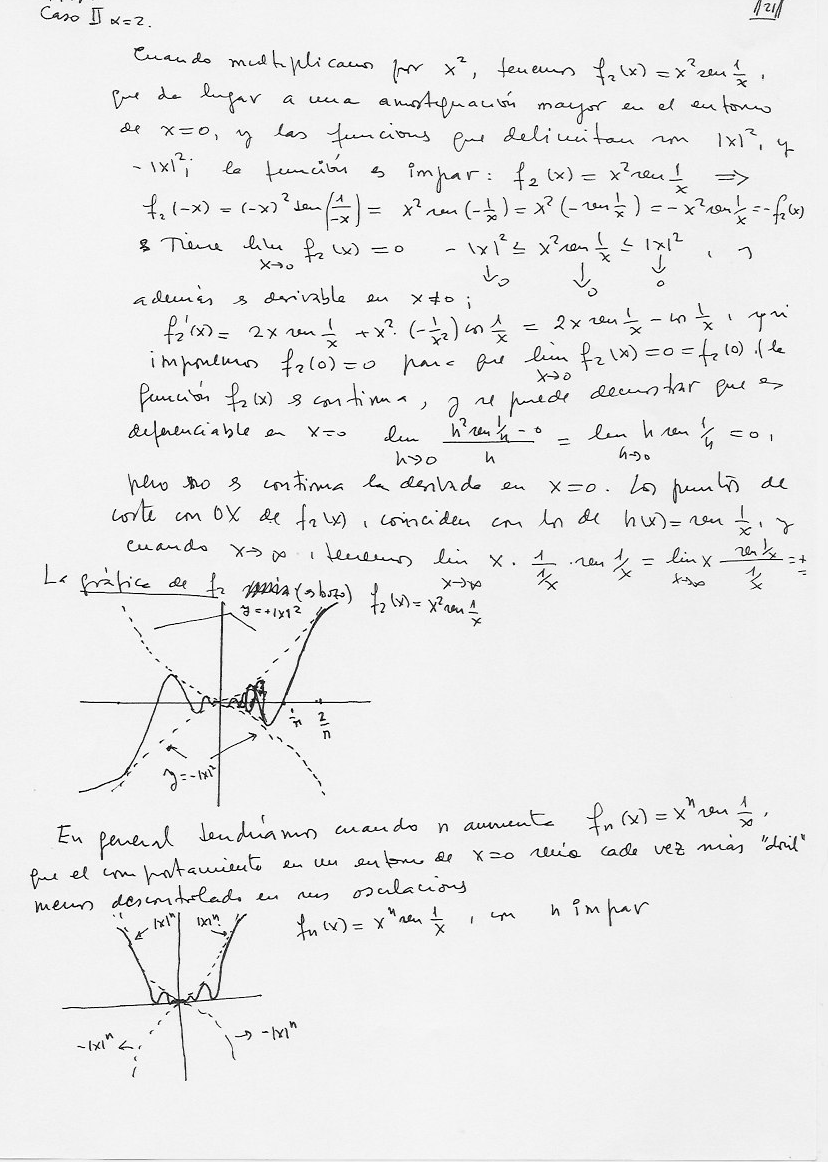 /21/
Caso II α=2.
Cuando multiplicamos por x², tenemos f₂(x) = x² sen 1/x,
que da lugar a una amortiguación mayor en el entorno
de x=0, y las funcions que delimitan son |x|², y
-|x|²; la función es impar: f₂(x) = x² sen 1/x ⟹
f₂(-x) = (-x)² sen(1/-x) = x² sen(-1/x) = x²(-sen 1/x) = -x² sen 1/x = -f₂(x)
s Tiene lim x→0 f₂(x) = 0 -|x|² ≤ x² sen 1/x ≤ |x|², y
↓0 ↓0 ↓0
además s derivable en x≠0;
f₂'(x) = 2x sen 1/x + x²·(-1/x²) cos 1/x = 2x sen 1/x - cos 1/x, y si
imponemos f₂(0)=0 para que lim x→0 f₂(x) = 0 = f₂(0), la
función f₂(x) s continua, y se puede demostrar que es
diferenciable en x=0 lim h→0 (h² sen 1/h - 0)/h = lim h→0 h sen 1/h = 0,
pero no s continua la derivada en x=0. Los puntos de
corte con OX de f₂(x), coinciden con los de h(x) = sen 1/x, y
cuando x→∞, tenemos lim x→∞ x · 1/(1/x) · sen 1/x = lim x→∞ x (sen 1/x)/(1/x) = ±
La gráfica de f₂ (sbozo) f₂(x) = x² sen 1/x
y=+|x|²
1/π 2/π
y=-|x|²
En general tendríamos cuando n aumenta fₙ(x) = xⁿ sen 1/x,
que el comportamiento en un entorno de x=0 sería cada vez más "dócil"
menos descontrolado en sus oscilacions
|x|ⁿ |x|ⁿ fₙ(x) = xⁿ sen 1/x, con n impar
-|x|ⁿ ← → -|x|ⁿ